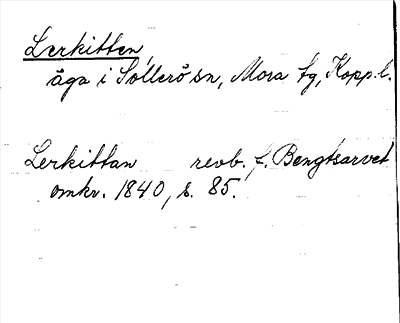 Lerkitten,
äga i Sollerö sn, Mora tg, Kopp. l.
Lerkittan revb. f. Bengtsarvet
omkr. 1840, s. 85.